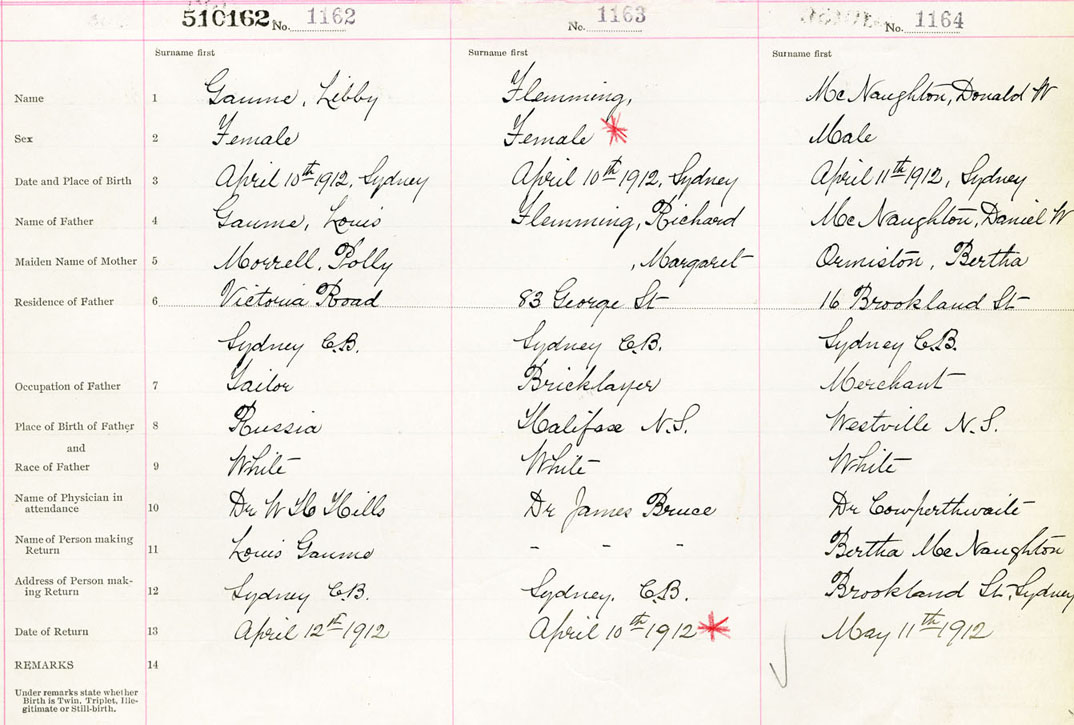 510162 No. 1162 No. 1163 No. 1164
Surname first Surname first Surname first
Name 1 Gaume, Libby Flemming, Mc Naughton, Donald W
Sex 2 Female Female * Male
Date and Place of Birth 3 April 10th 1912, Sydney April 10th 1912, Sydney April 11th 1912, Sydney
Name of Father 4 Gaume, Louis Flemming, Richard Mc Naughton, Daniel W
Maiden Name of Mother 5 Morrell, Polly , Margaret Ormiston, Bertha
Residence of Father 6 Victoria Road 83 George St 16 Brookland St
Sydney C.B. Sydney C.B. Sydney C.B.
Occupation of Father 7 Tailor Bricklayer Merchant
Place of Birth of Father 8 Russia Halifax N.S. Westville N.S.
and
Race of Father 9 White White White
Name of Physician in
attendance 10 Dr W H Hills Dr James Bruce Dr Cowperthwaite
Name of Person making
Return 11 Louis Gaume - - - Bertha Mc Naughton
Address of Person mak-
ing Return 12 Sydney C.B. Sydney. C.B. Brookland St, Sydney
Date of Return 13 April 12th 1912 April 10th 1912 * May 11th 1912
REMARKS 14
Under remarks state whether
Birth is Twin, Triplet, Ille-
gitimate or Still-birth.